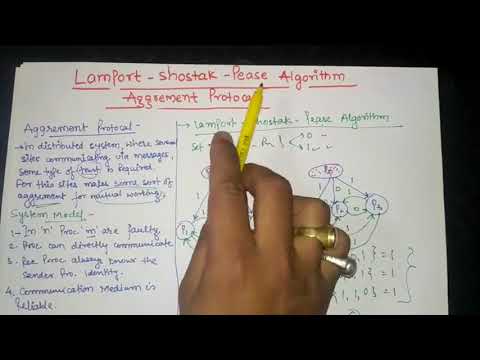 Lamport - Shostak - Pease Algorithm
Aggrement Protocol
Aggrement Protocal -
- In distributed system, where several
sites communicating via messages,
some type of trust is required.
For this sites makes some sort of
aggrement for mutual working.
System Model -
1. In 'n' Proc 'm' are faulty.
2. Proc can directly communicate
3. Rec Proc always know the
sender Pro. Identity.
4. Communication Medium is
Reliable.
→ Lamport - Shostak - Pease Algorithm
Set
Pn
0
1
1
1
0
1
P1
P2
P3
1
1
} = 1
1, 1, 0 } = 1